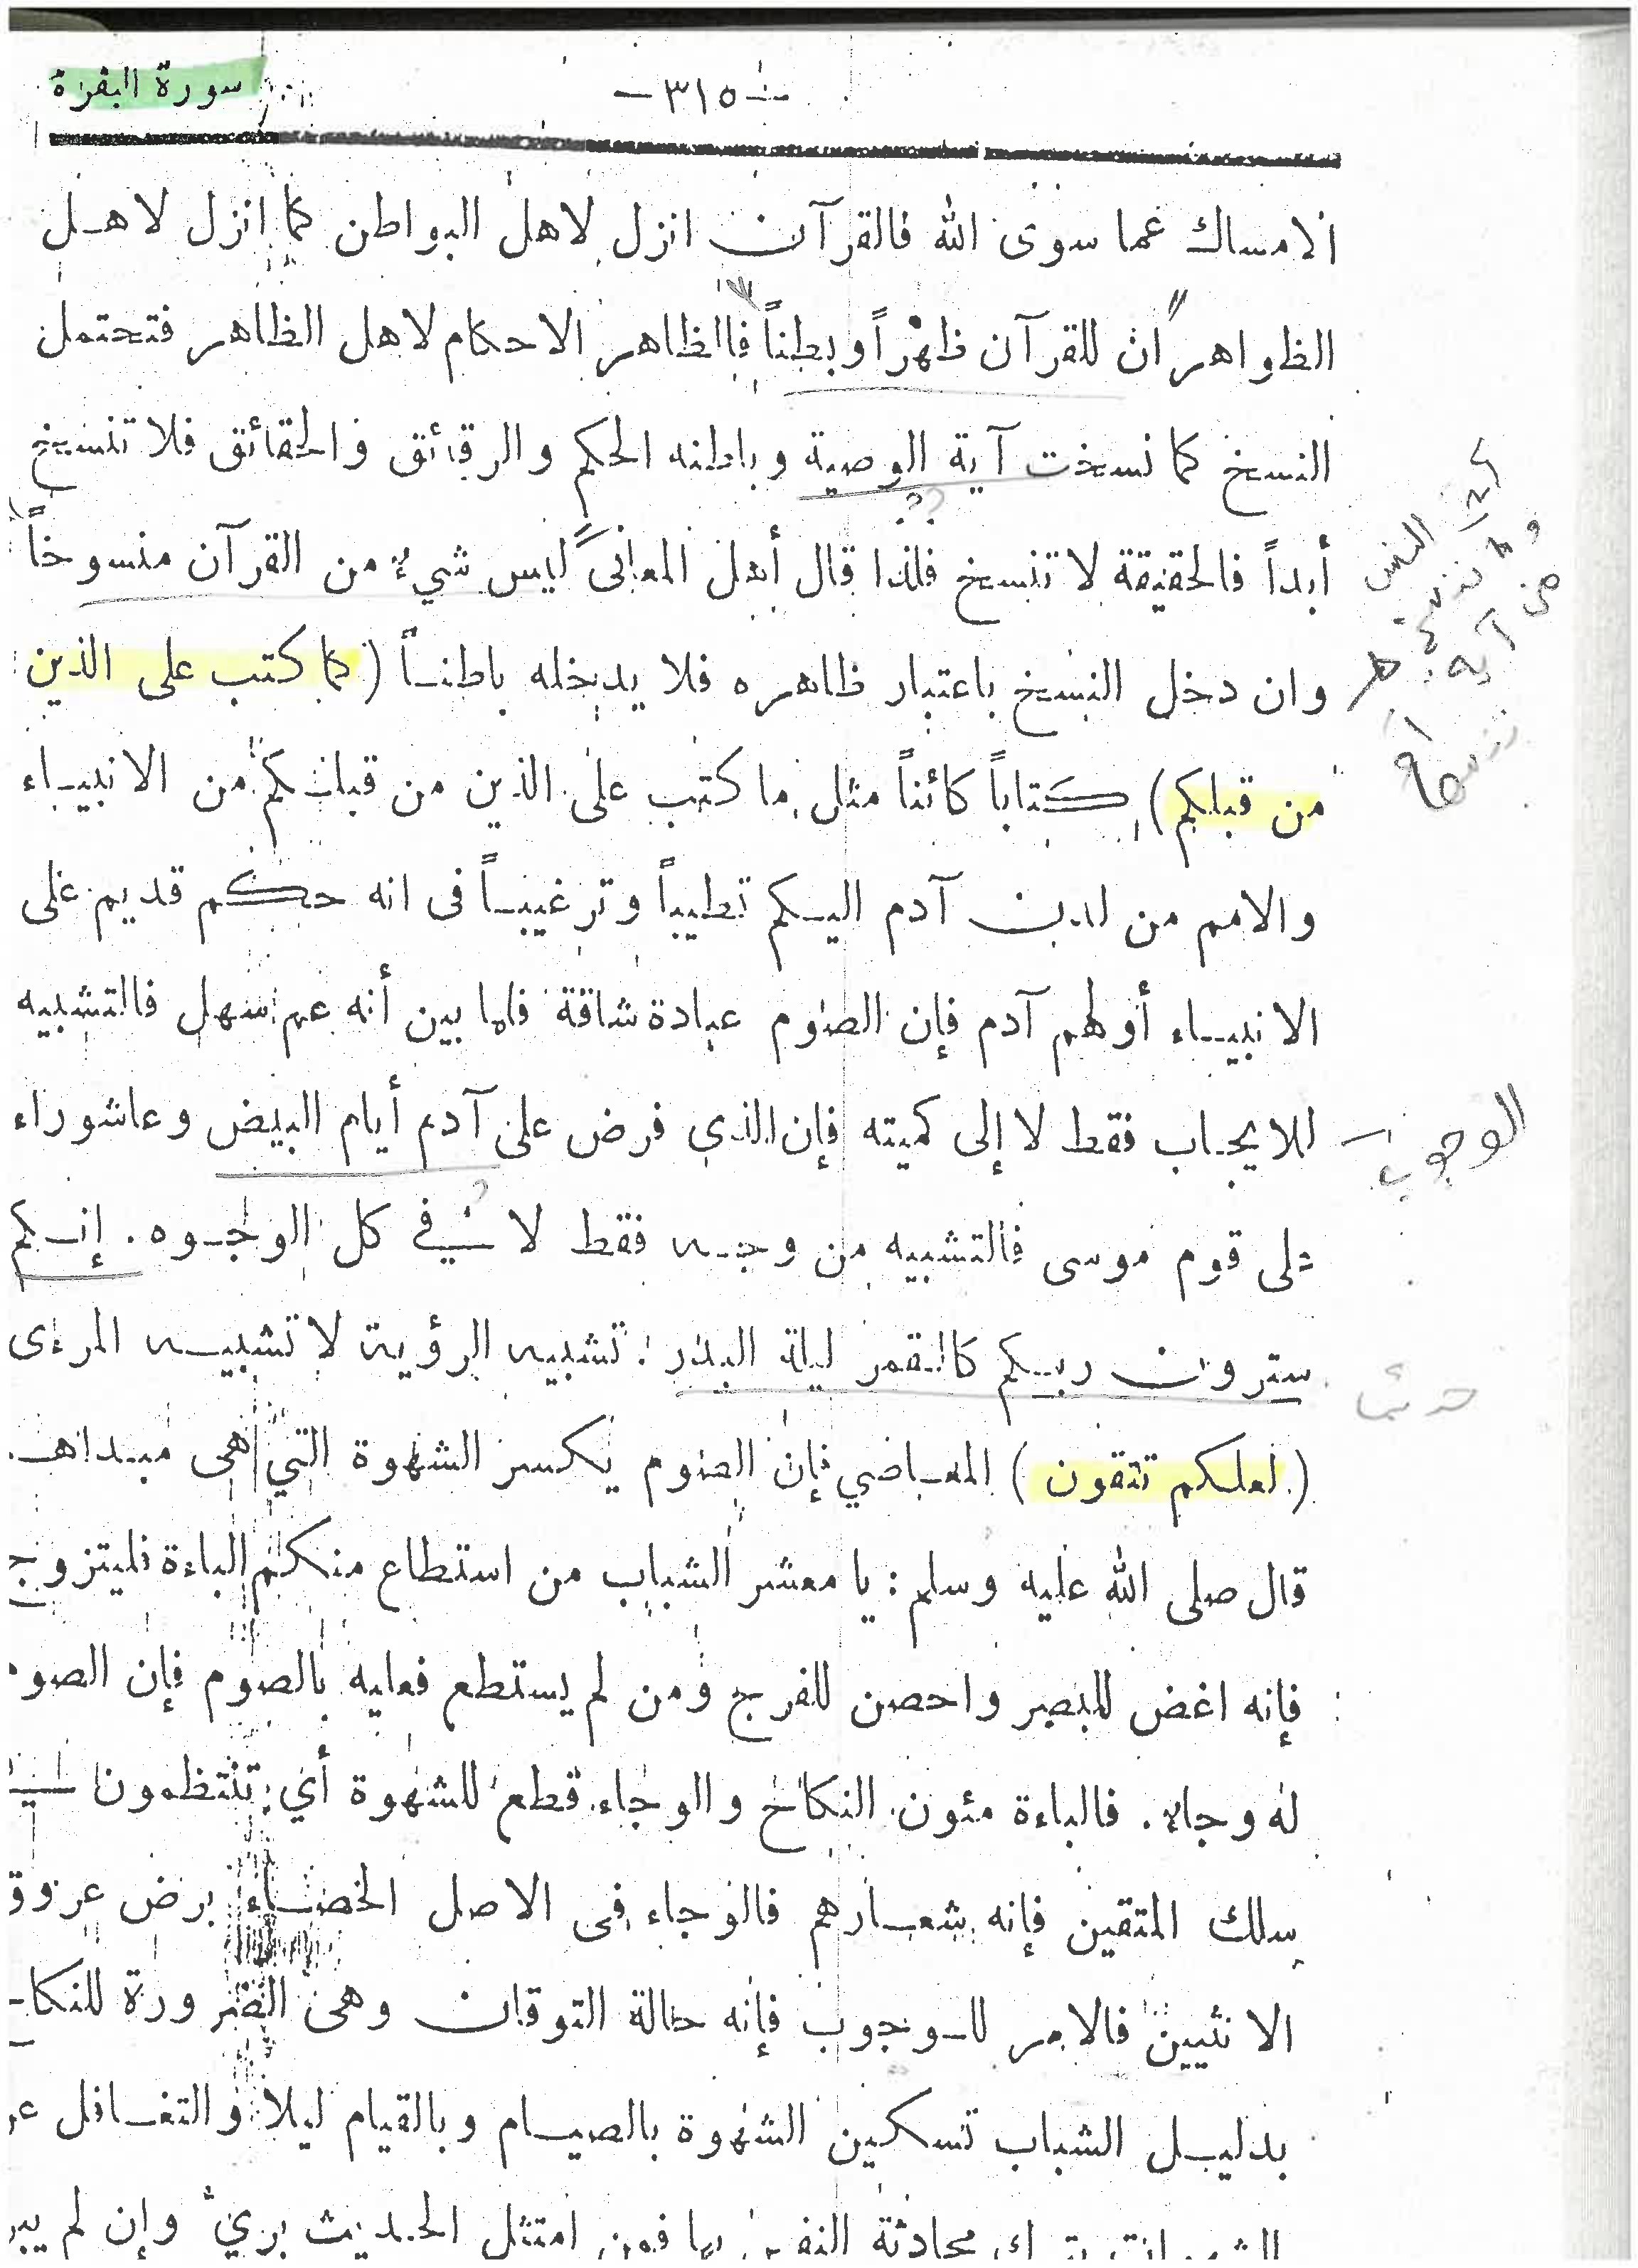 سورة البقرة
-٣١٥-
الامساك عما سوى الله فالقرآن انزل لاهل البواطن كما انزل لاهل
الظواهر ان للقرآن ظهْراً وبطناً فالظاهر الاحكام لاهل الظاهر فتحتمل
النسخ كما نسخت آية الوصية وباطنه الحكم والرقائق والحقائق فلا تنسخ
أبداً فالحقيقة لا تنسخ فلذا قال أهل المعانى ليس شيء من القرآن منسوخاً
وان دخل النسخ باعتبار ظاهره فلا يدخله باطناً (كما كتب على الذين
من قبلكم) كتاباً كائناً مثل ما كتب على الذين من قبلكم من الانبياء
والامم من لدن آدم اليكم تطيباً وترغيباً فى انه حكم قديم على
الانبياء أولهم آدم فإن الصوم عبادة شاقة فلما بين أنه عم سهل فالتشبيه
للايجاب فقط لا إلى كميته فإن الذي فرض على آدم أيام البيض وعاشوراء
الوجوب
على قوم موسى فالتشبيه من وجه فقط لا في كل الوجوه. إنكم
سترون ربكم كالقمر ليلة البدر: تشبيه الرؤية لا تشبيه المرءى
(لعلكم تتقون) المعاصي فإن الصوم يكسر الشهوة التي هى مبداها.
قال صلى الله عليه وسلم: يا معشر الشباب من استطاع منكم الباءة فليتزوج
فإنه اغض للبصر واحصن للفرج ومن لم يستطع فعليه بالصوم فإن الصوم
له وجاء. فالباءة مئون النكاح والوجاء قطع للشهوة أي تنتظمون
سلك المتقين فإنه شعارهم فالوجاء فى الاصل الخصاء برض عروق
الانثيين فالامر للوجوب فإنه حالة التوقان وهى الضرورة للنكا
بدليل الشباب تسكين الشهوة بالصيام وبالقيام ليلا والتغافل عن
محادثة النفس بها فمن امتثل الحديث بريء وإن لم يبر